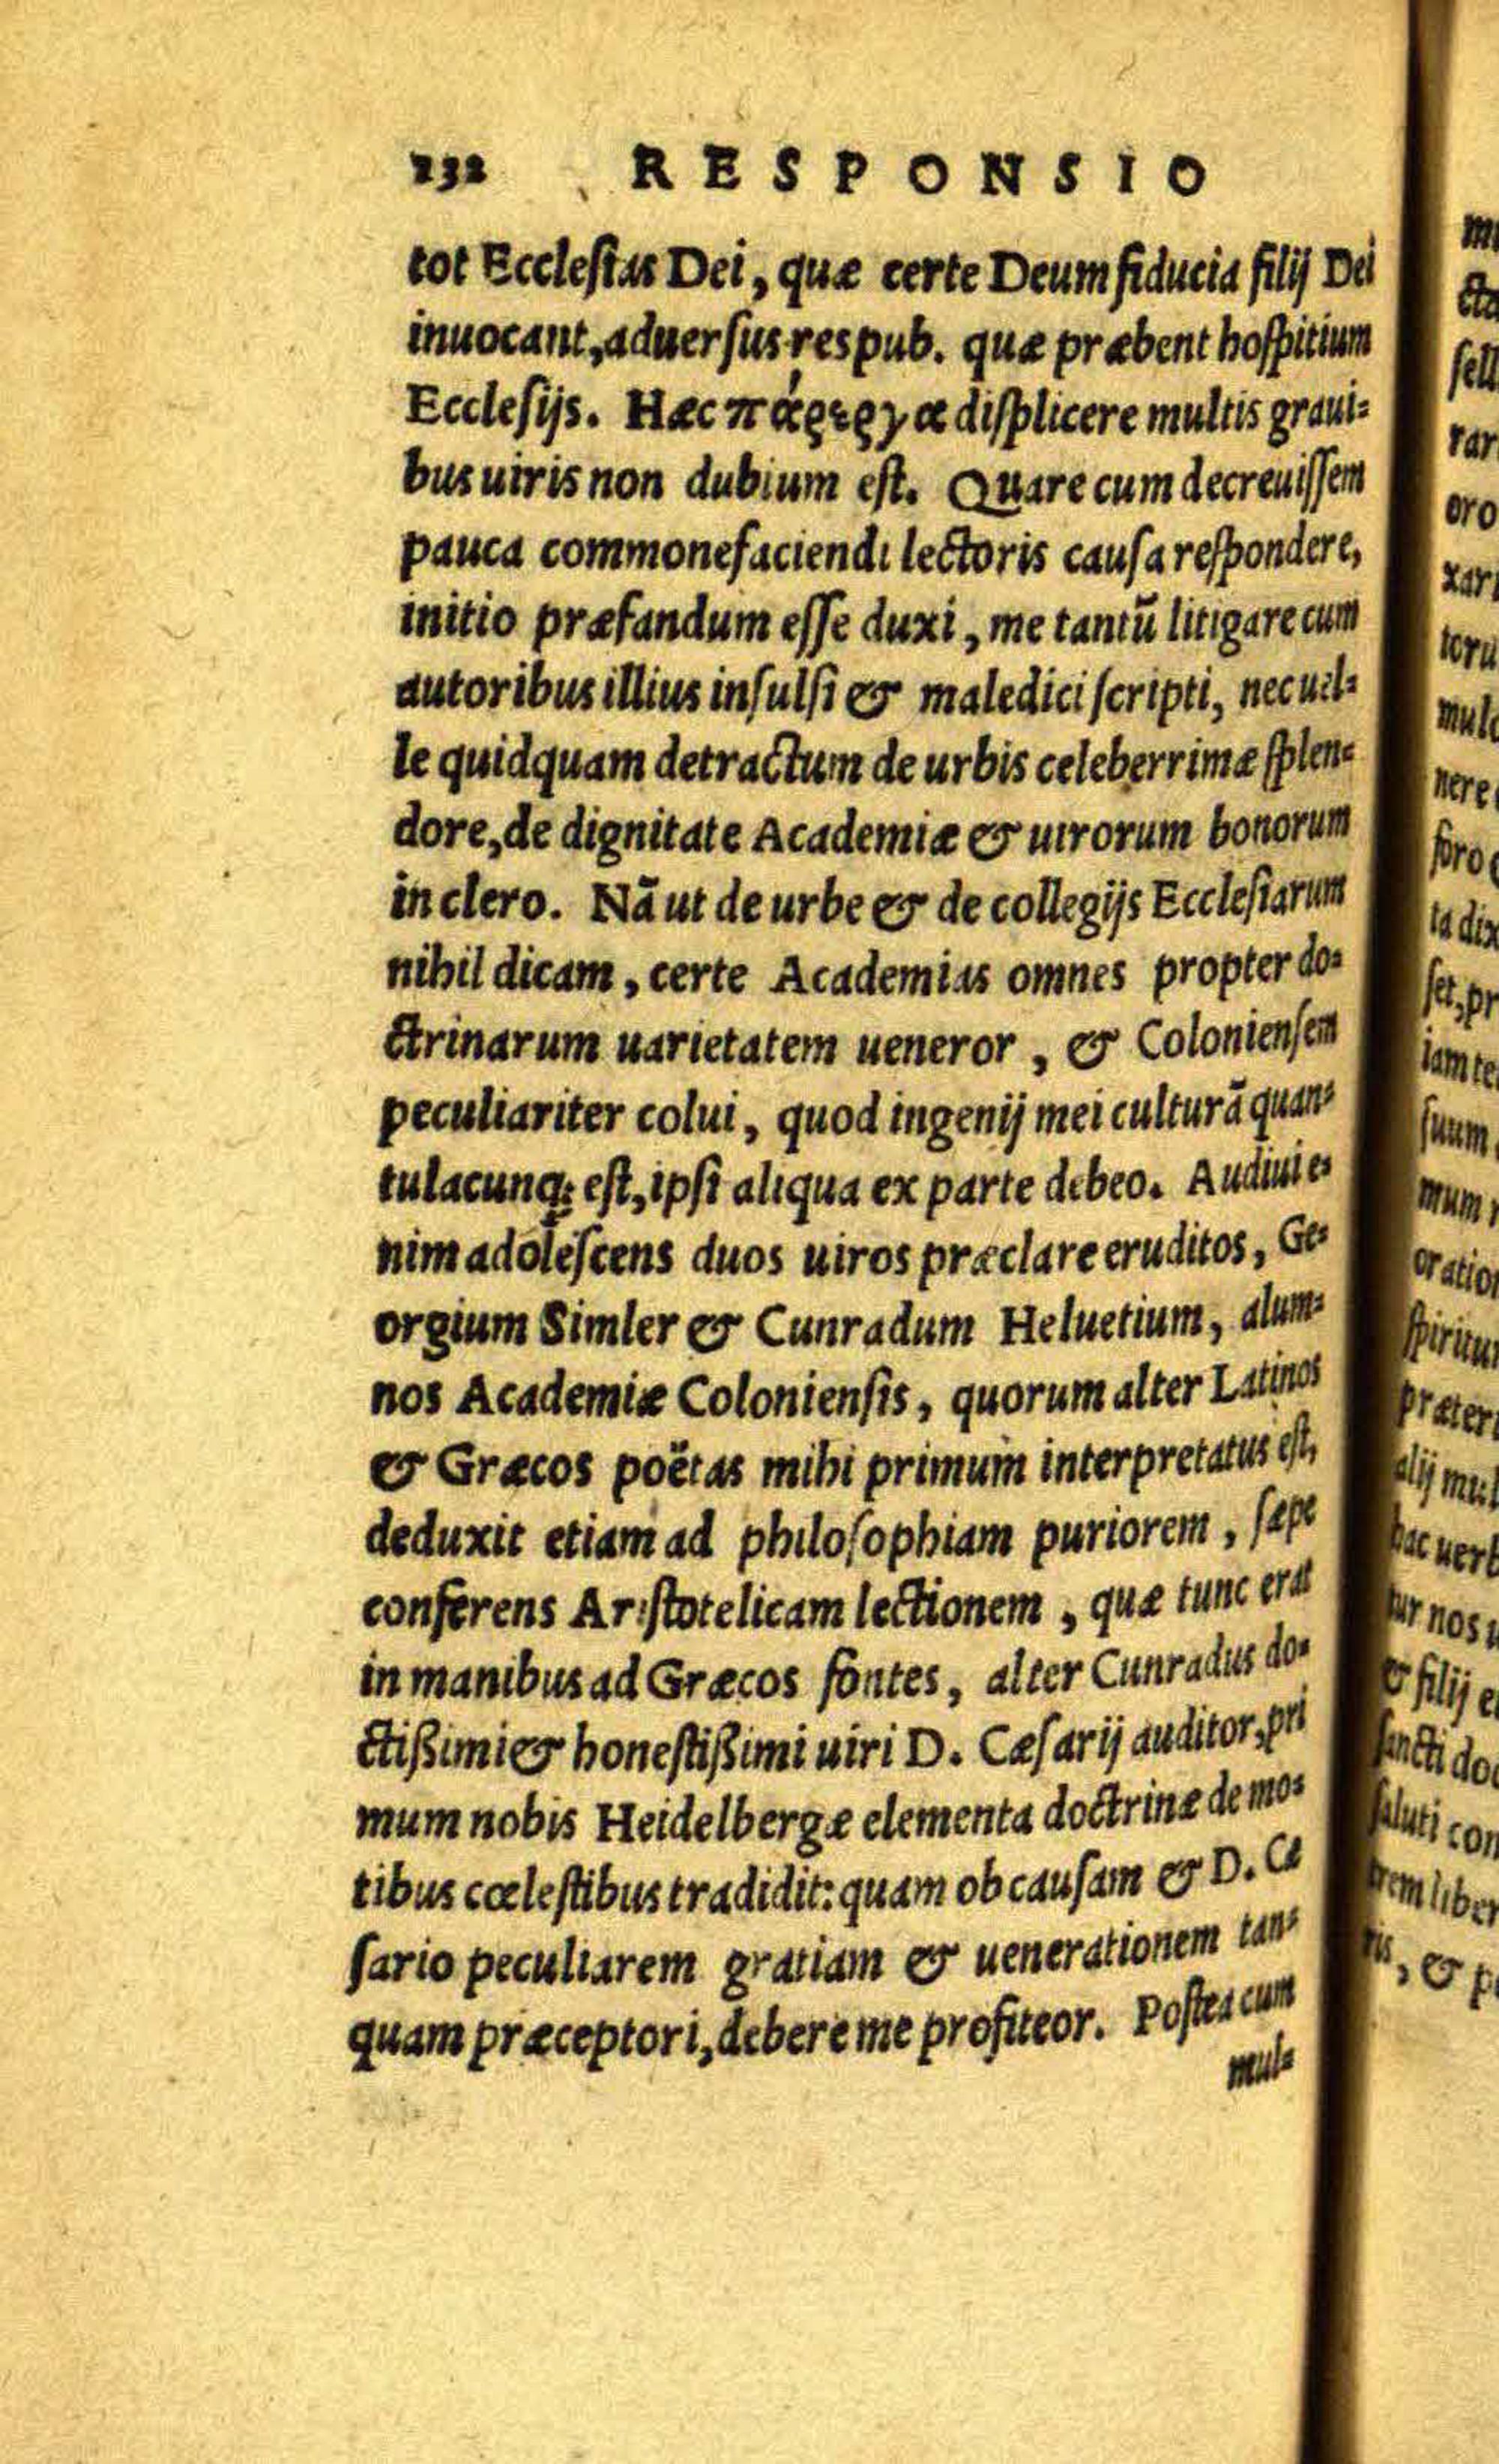 232 RESPONSIO
tot Ecclesias Dei, quæ certe Deum fiducia filij Dei
inuocant, aduersus respub. quæ præbent hospitium
Ecclesijs. Hæc πάρεργα displicere multis graui=
bus uiris non dubium est. Quare cum decreuissem
pauca commonefaciendi lectoris causa respondere,
initio præfandum esse duxi, me tantū litigare cum
autoribus illius insulsi & maledici scripti, nec uel=
le quidquam detractum de urbis celeberrimæ splen=
dore, de dignitate Academiæ & uirorum bonorum
in clero. Nā ut de urbe & de collegijs Ecclesiarum
nihil dicam, certe Academias omnes propter do=
ctrinarum uarietatem ueneror, & Coloniensem
peculiariter colui, quod ingenij mei culturā quan=
tulacunq; est, ipsi aliqua ex parte debeo. Audiui e=
nim adolescens duos uiros præclare eruditos, Ge=
orgium Simler & Cunradum Heluetium, alum=
nos Academiæ Coloniensis, quorum alter Latinos
& Græcos poëtas mihi primum interpretatus est,
deduxit etiam ad philosophiam puriorem, sæpe
conferens Aristotelicam lectionem, quæ tunc erat
in manibus ad Græcos fontes, alter Cunradus do=
ctißimi & honestißimi uiri D. Cæsarij auditor, pri
mum nobis Heidelbergæ elementa doctrinæ de mo=
tibus cœlestibus tradidit: quam ob causam & D. Cæ
sario peculiarem gratiam & uenerationem tan=
quam præceptori, debere me profiteor. Postea cum
mul=